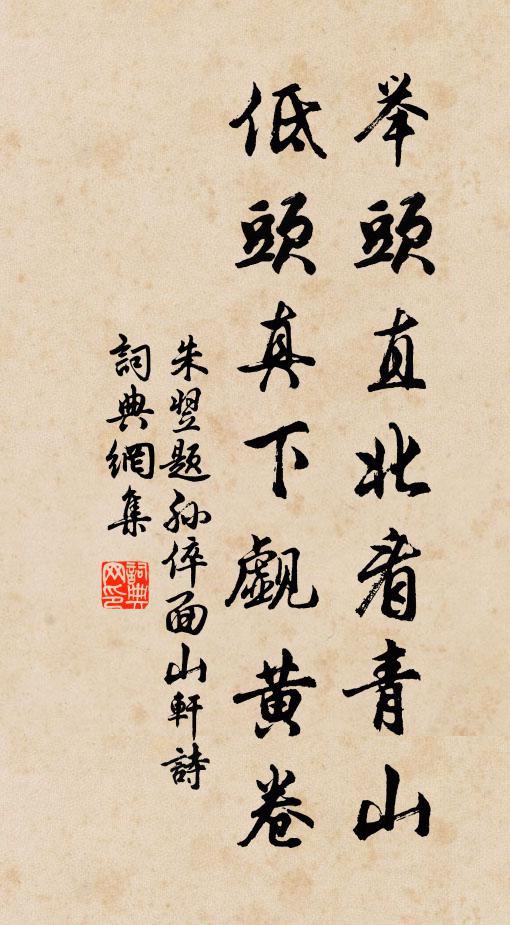 举頭直北看青山
低頭真下觑黄卷
朱翌题孙倅面山軒詩
詞典網集
詞典网印